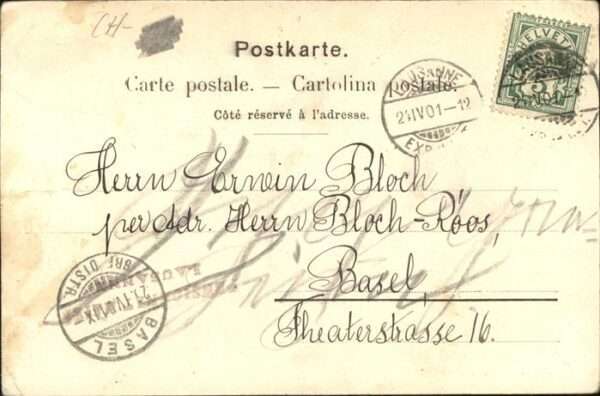 CH-
Postkarte.
Carte postale. — Cartolina postale.
Côté réservé à l'adresse.
HELVETIA
5
LAUSANNE
21 IV 01 - 12
LAUSANNE
Herrn Erwin Bloch
per Adr. Herrn Bloch-Roos,
Basel,
Theaterstrasse 16.
LAUSANNE
BASEL
BRF. DISTR.
21. IV. 01. IX